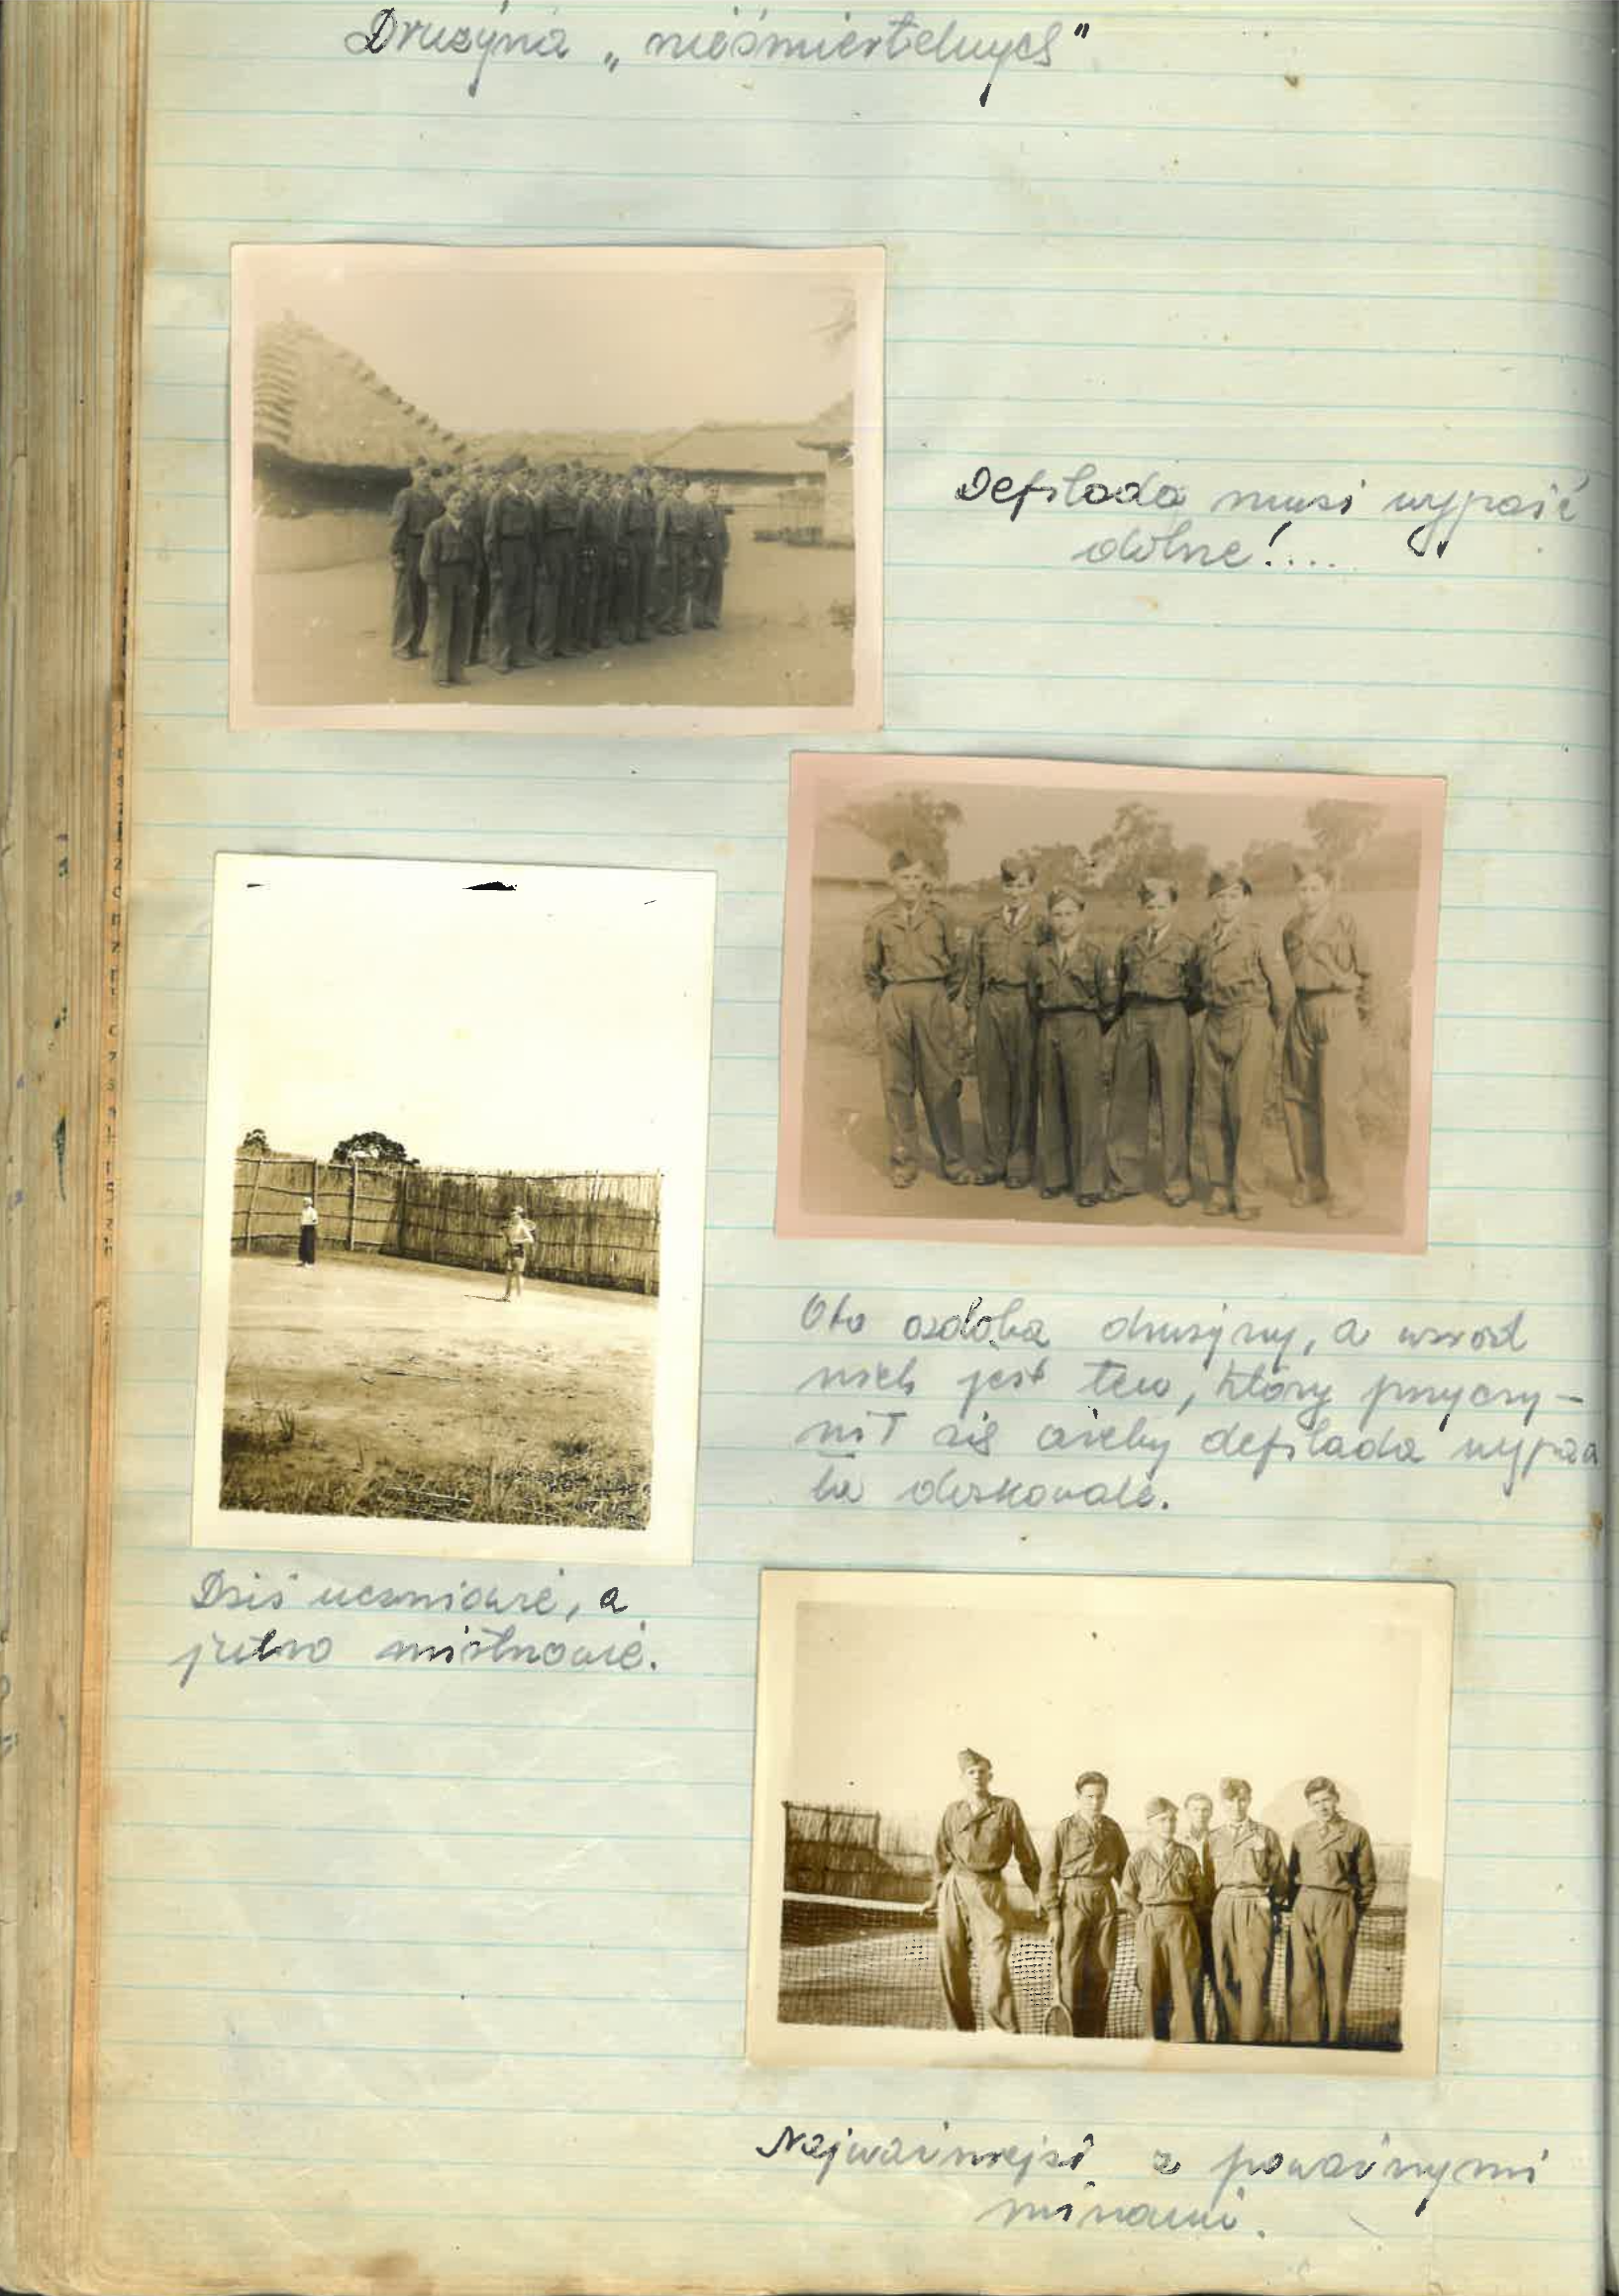 Drużyna „nieśmiertelnych"
Defilada musi wypaść
dobrze!....
Oto ozdoba drużyny, a wśród
nich jest ten, który przyczy-
nił się ażeby defilada wypad
ła doskonale.
Dziś uczniowie, a
jutro mistrzowie.
Najważniejsi z poważnymi
minami.